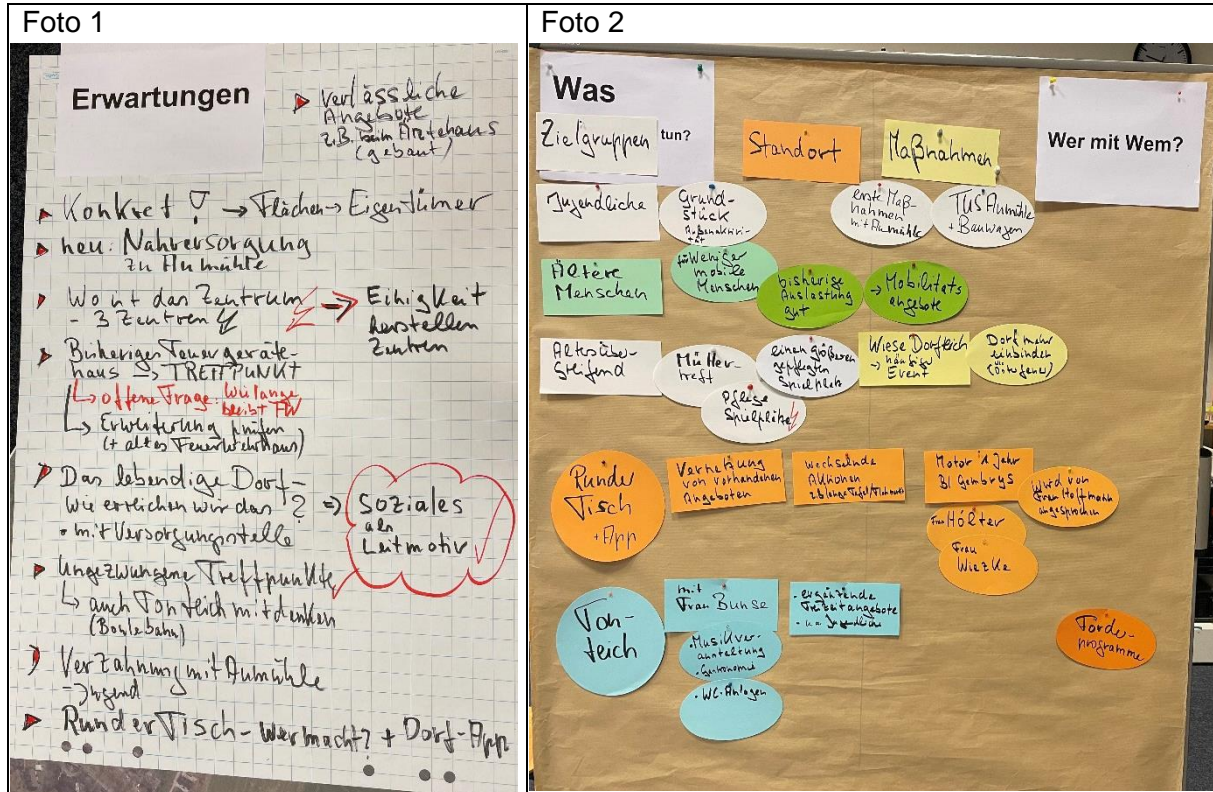 Foto 1
Erwartungen
▶ Verlässliche
Angebote
z.B. beim Ärztehaus
(gebaut)
▶ Konkret! → Flächen → Eigentümer
▶ neu: Nahversorgung
zu Aumühle
▶ Wo ist das Zentrum
- 3 Zentren
⇒ Einigkeit
herstellen
Zentren
▶ Bisheriges Feuergeräte-
haus → TREFFPUNKT
↳ offene Frage: Wie lange
bleibt FW
↳ Erweiterung prüfen
(+ altes Feuerwehrhaus)
▶ Das lebendige Dorf-
wie erreichen wir das?
• mit Versorgungsstelle
⇒ Soziales
als
Leitmotiv
▶ Ungezwungene Treffpunkte
↳ auch Tonteich mitdenken
(Boulebahn)
▶ Verzahnung mit Aumühle
→ Jugend
▶ Runder Tisch - wer macht? + Dorf-App
Foto 2
Was
tun?
Wer mit Wem?
Zielgruppen
Standort
Maßnahmen
Jugendliche
Grund-
stück
Außenaktivi-
tät
erste Maß-
nahmen
mit Aumühle
TUS Aumühle
+ Bauwagen
Ältere
Menschen
für Weniger
mobile
Menschen
bisherige
Auslastung
gut
→ Mobilitäts
angebote
Altersüber-
greifend
Mütter-
treff
einen größeren
gepflegten
Spielplatz
Pflege
Spielplätze
Wiese Dorfteich
→ häufiger
Event
Dorf mehr
einbinden
Runder
Tisch
+ App
Vernetzung
von vorhandenen
Angeboten
Wechselnde
Aktionen
z.B. lange Tafel/Flohmarkt
Motor 1 Jahr
BI Gembrys
wird von
Frau Hoffmann
angesprochen
Frau Hölter
Frau
Wiezke
Ton-
teich
mit
Frau Bunse
• Musikver-
anstaltung
• Gastronomie
• WC-Anlagen
• ergänzende
Freizeitangebote
Förder-
programme